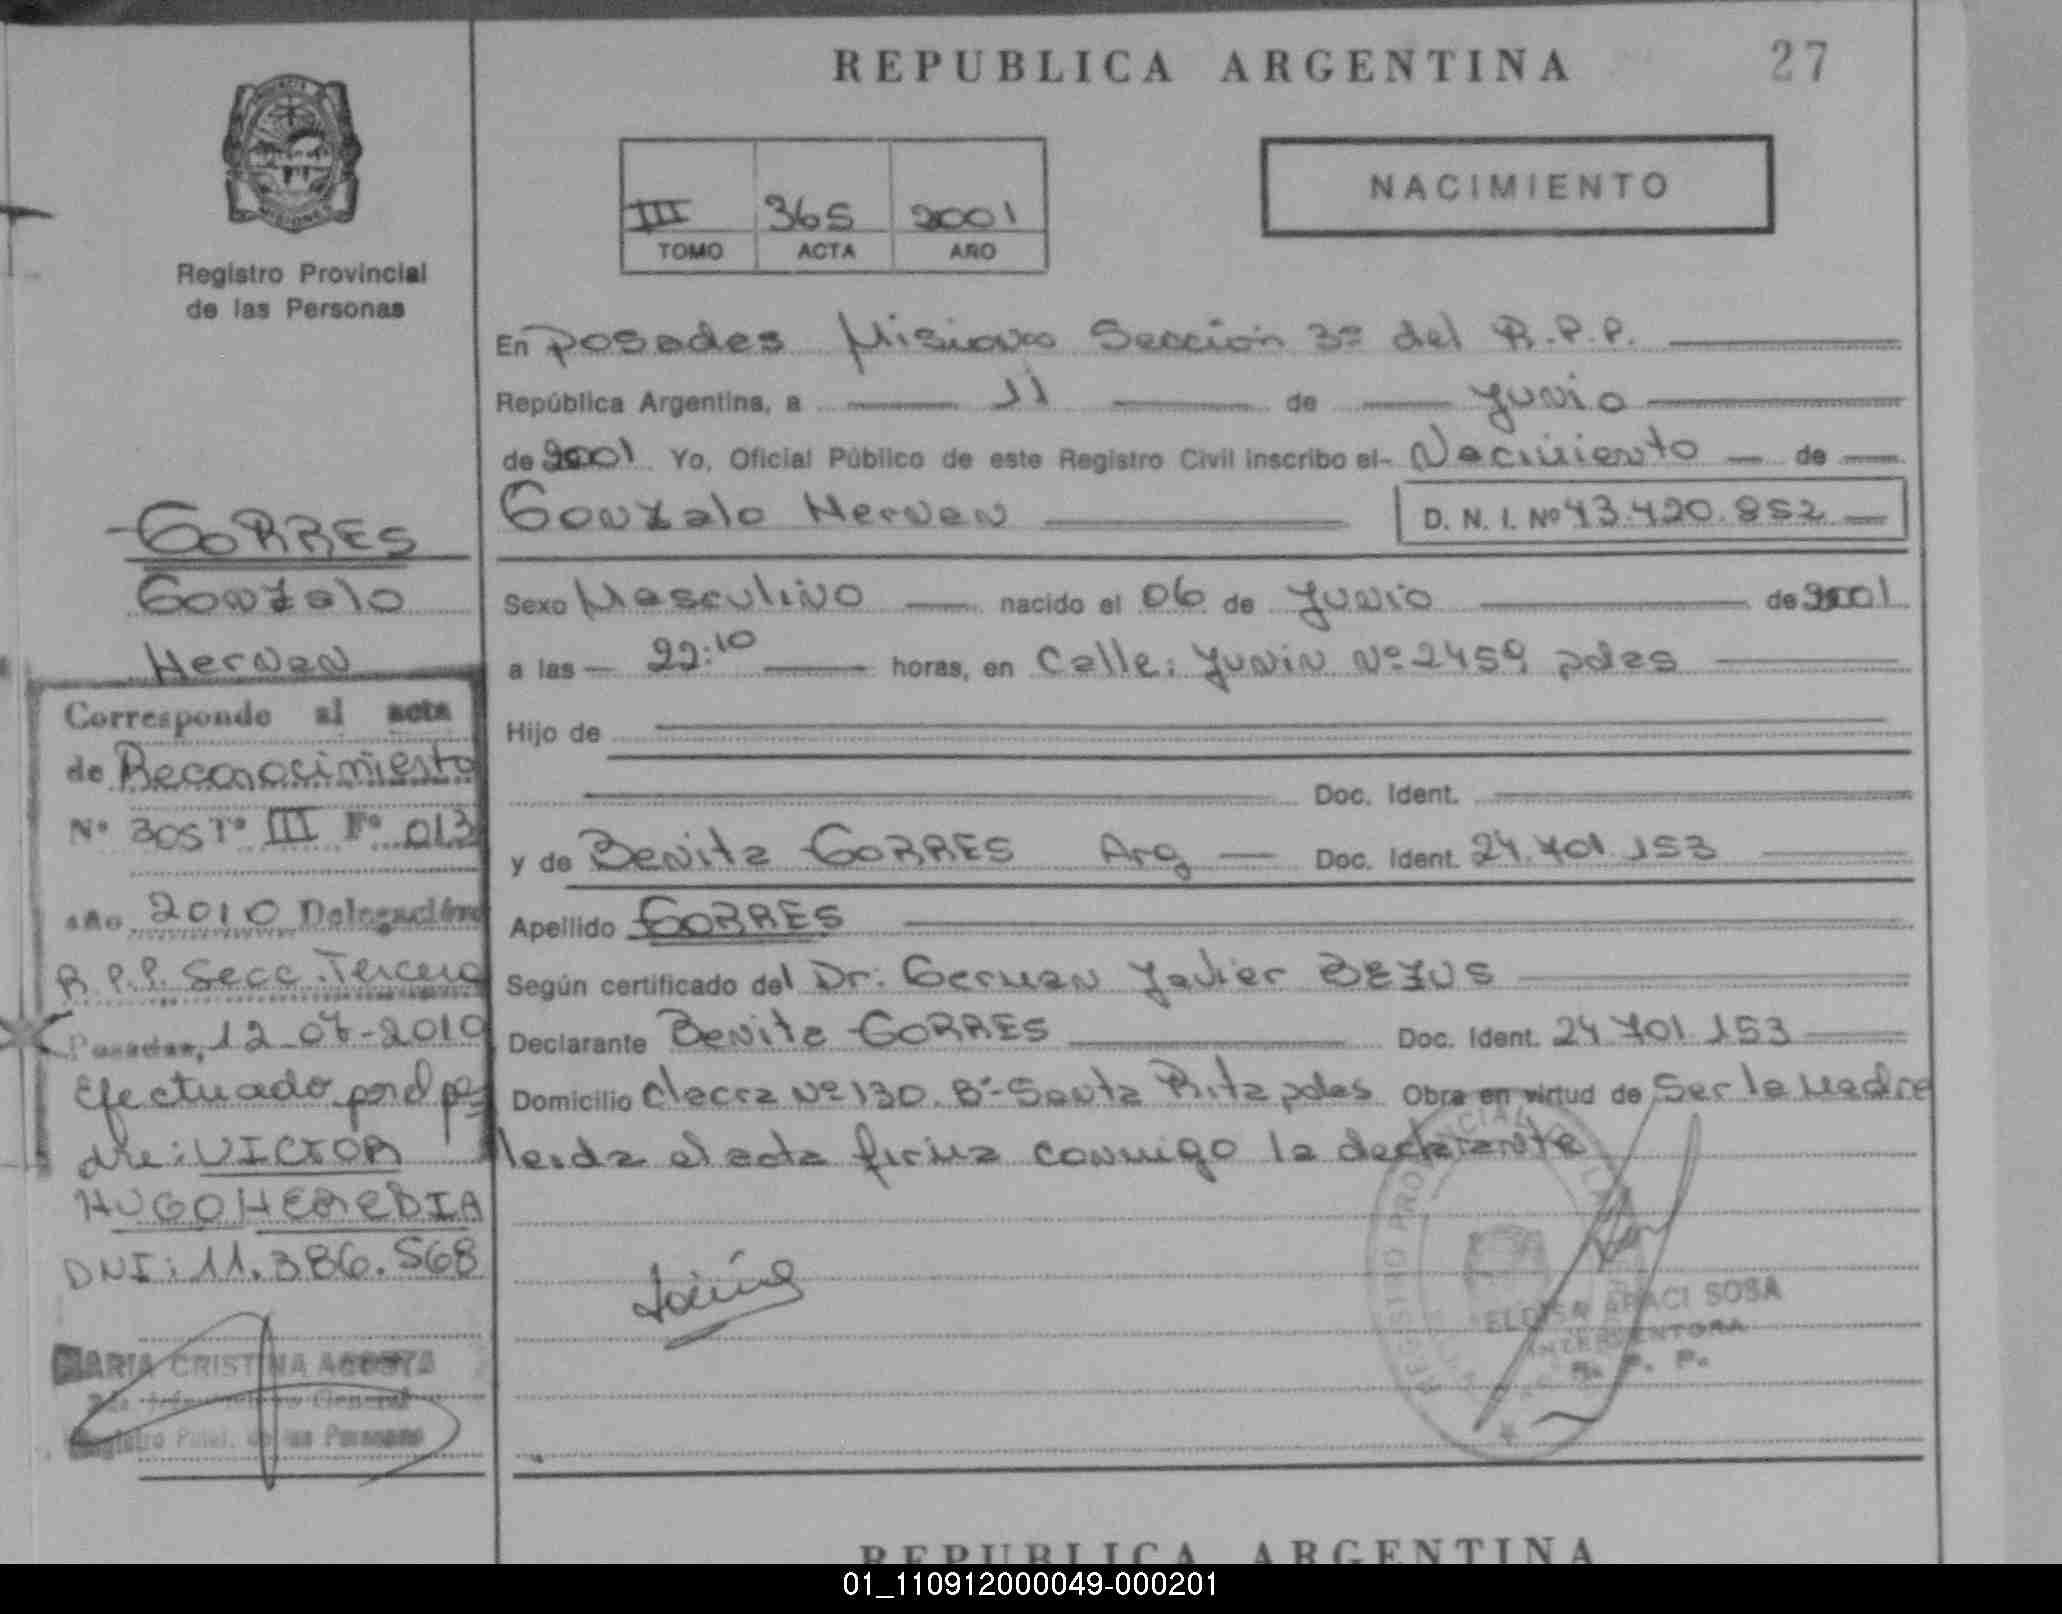 REPUBLICA ARGENTINA
27
Registro Provincial
de las Personas
III 365 2001
TOMO ACTA AÑO
NACIMIENTO
En Posadas Misiones Sección 3ª del R.P.P.
República Argentina, a 11 de Junio
de 2001 Yo, Oficial Público de este Registro Civil inscribo el- Nacimiento de
Gonzalo Hernan D. N. I. Nº 43.420.852
Sexo Masculino nacido el 06 de Junio de 2001
a las 22:10 horas, en Calle: Junin Nº 2459 pdas
Hijo de
Doc. Ident.
y de Benita GORRES Arg Doc. Ident. 24.701.153
Apellido GORRES
Según certificado del Dr: German Javier BEZUS
Declarante Benita GORRES Doc. Ident. 24 701 153
Domicilio chacra Nº 130. Bº Santa Rita pdas Obra en virtud de Ser la Madre
leida el acta firma conmigo la declarante
ELOISA ARACI SOSA
INTERVENTORA
R. P. P.
GORRES
Gonzalo
Hernan
Corresponde al acta
de Reconocimiento
Nº 305 Tº III Fº 013
año 2010 Delegación
R.P.P. Secc. Tercera
Posadas, 12-07-2010
Efectuado por el pa-
dre: VICTOR
HUGO HEREDIA
DNI: 11.386.568
MARIA CRISTINA ACOSTA
REPUBLICA ARGENTINA
01_110912000049-000201